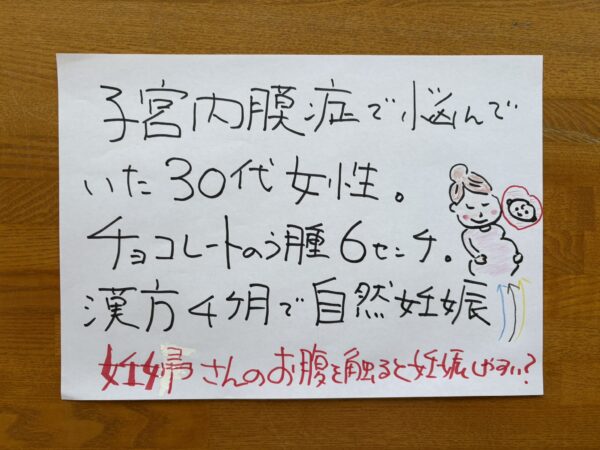 子宮内膜症で悩んで
いた30代女性。
チョコレートのう腫6センチ。
漢方4ケ月で自然妊娠
妊婦さんのお腹を触ると妊娠しやすい?